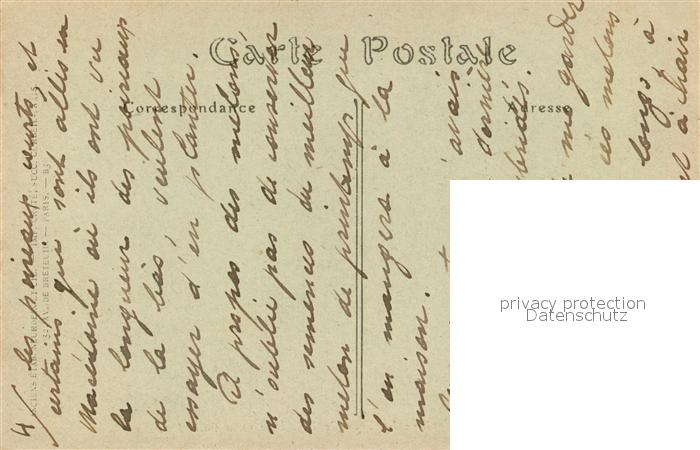 Carte Postale
Correspondance
Adresse
4/ les poireaux courts et
certains qui sont allés en
Macédoine où ils ont vu
la longueur des poireaux
de là bas, veulent
essayer d'en planter.
A propos des melons,
n'oublie pas de conserver
des semences du meilleur
melon de printemps que
l'on mangera à la
maison.
avais
dernier
me garder
des melons
longs à
et à chair
privacy protection
Datenschutz